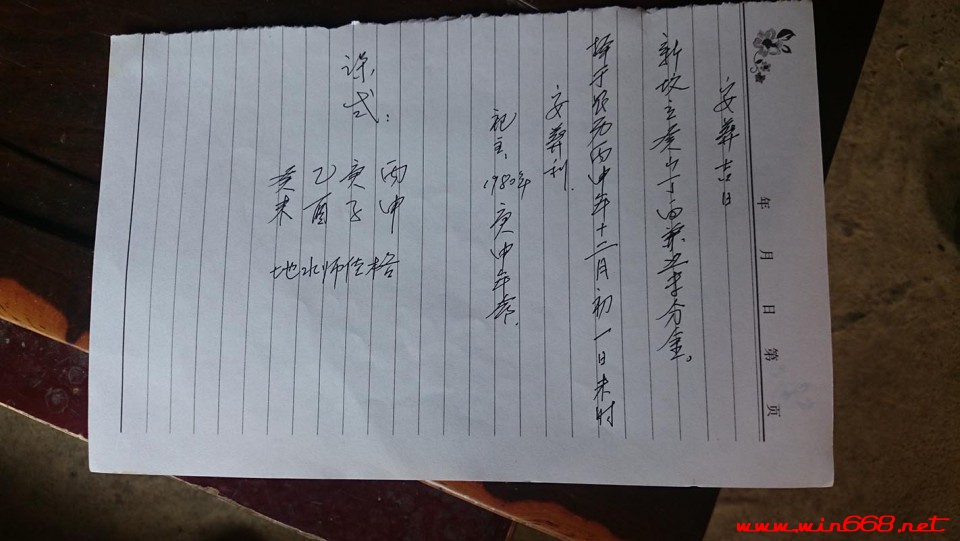 安葬吉日
新坟立癸山丁向兼丑未分金。
择于农历丙申年十二月初一日未时
安葬利.
祀主、1980年庚申年命.
课式：
丙 庚 乙 癸
申 子 酉 未
地水师佳格
年 月 日 第 页
www.win668.net